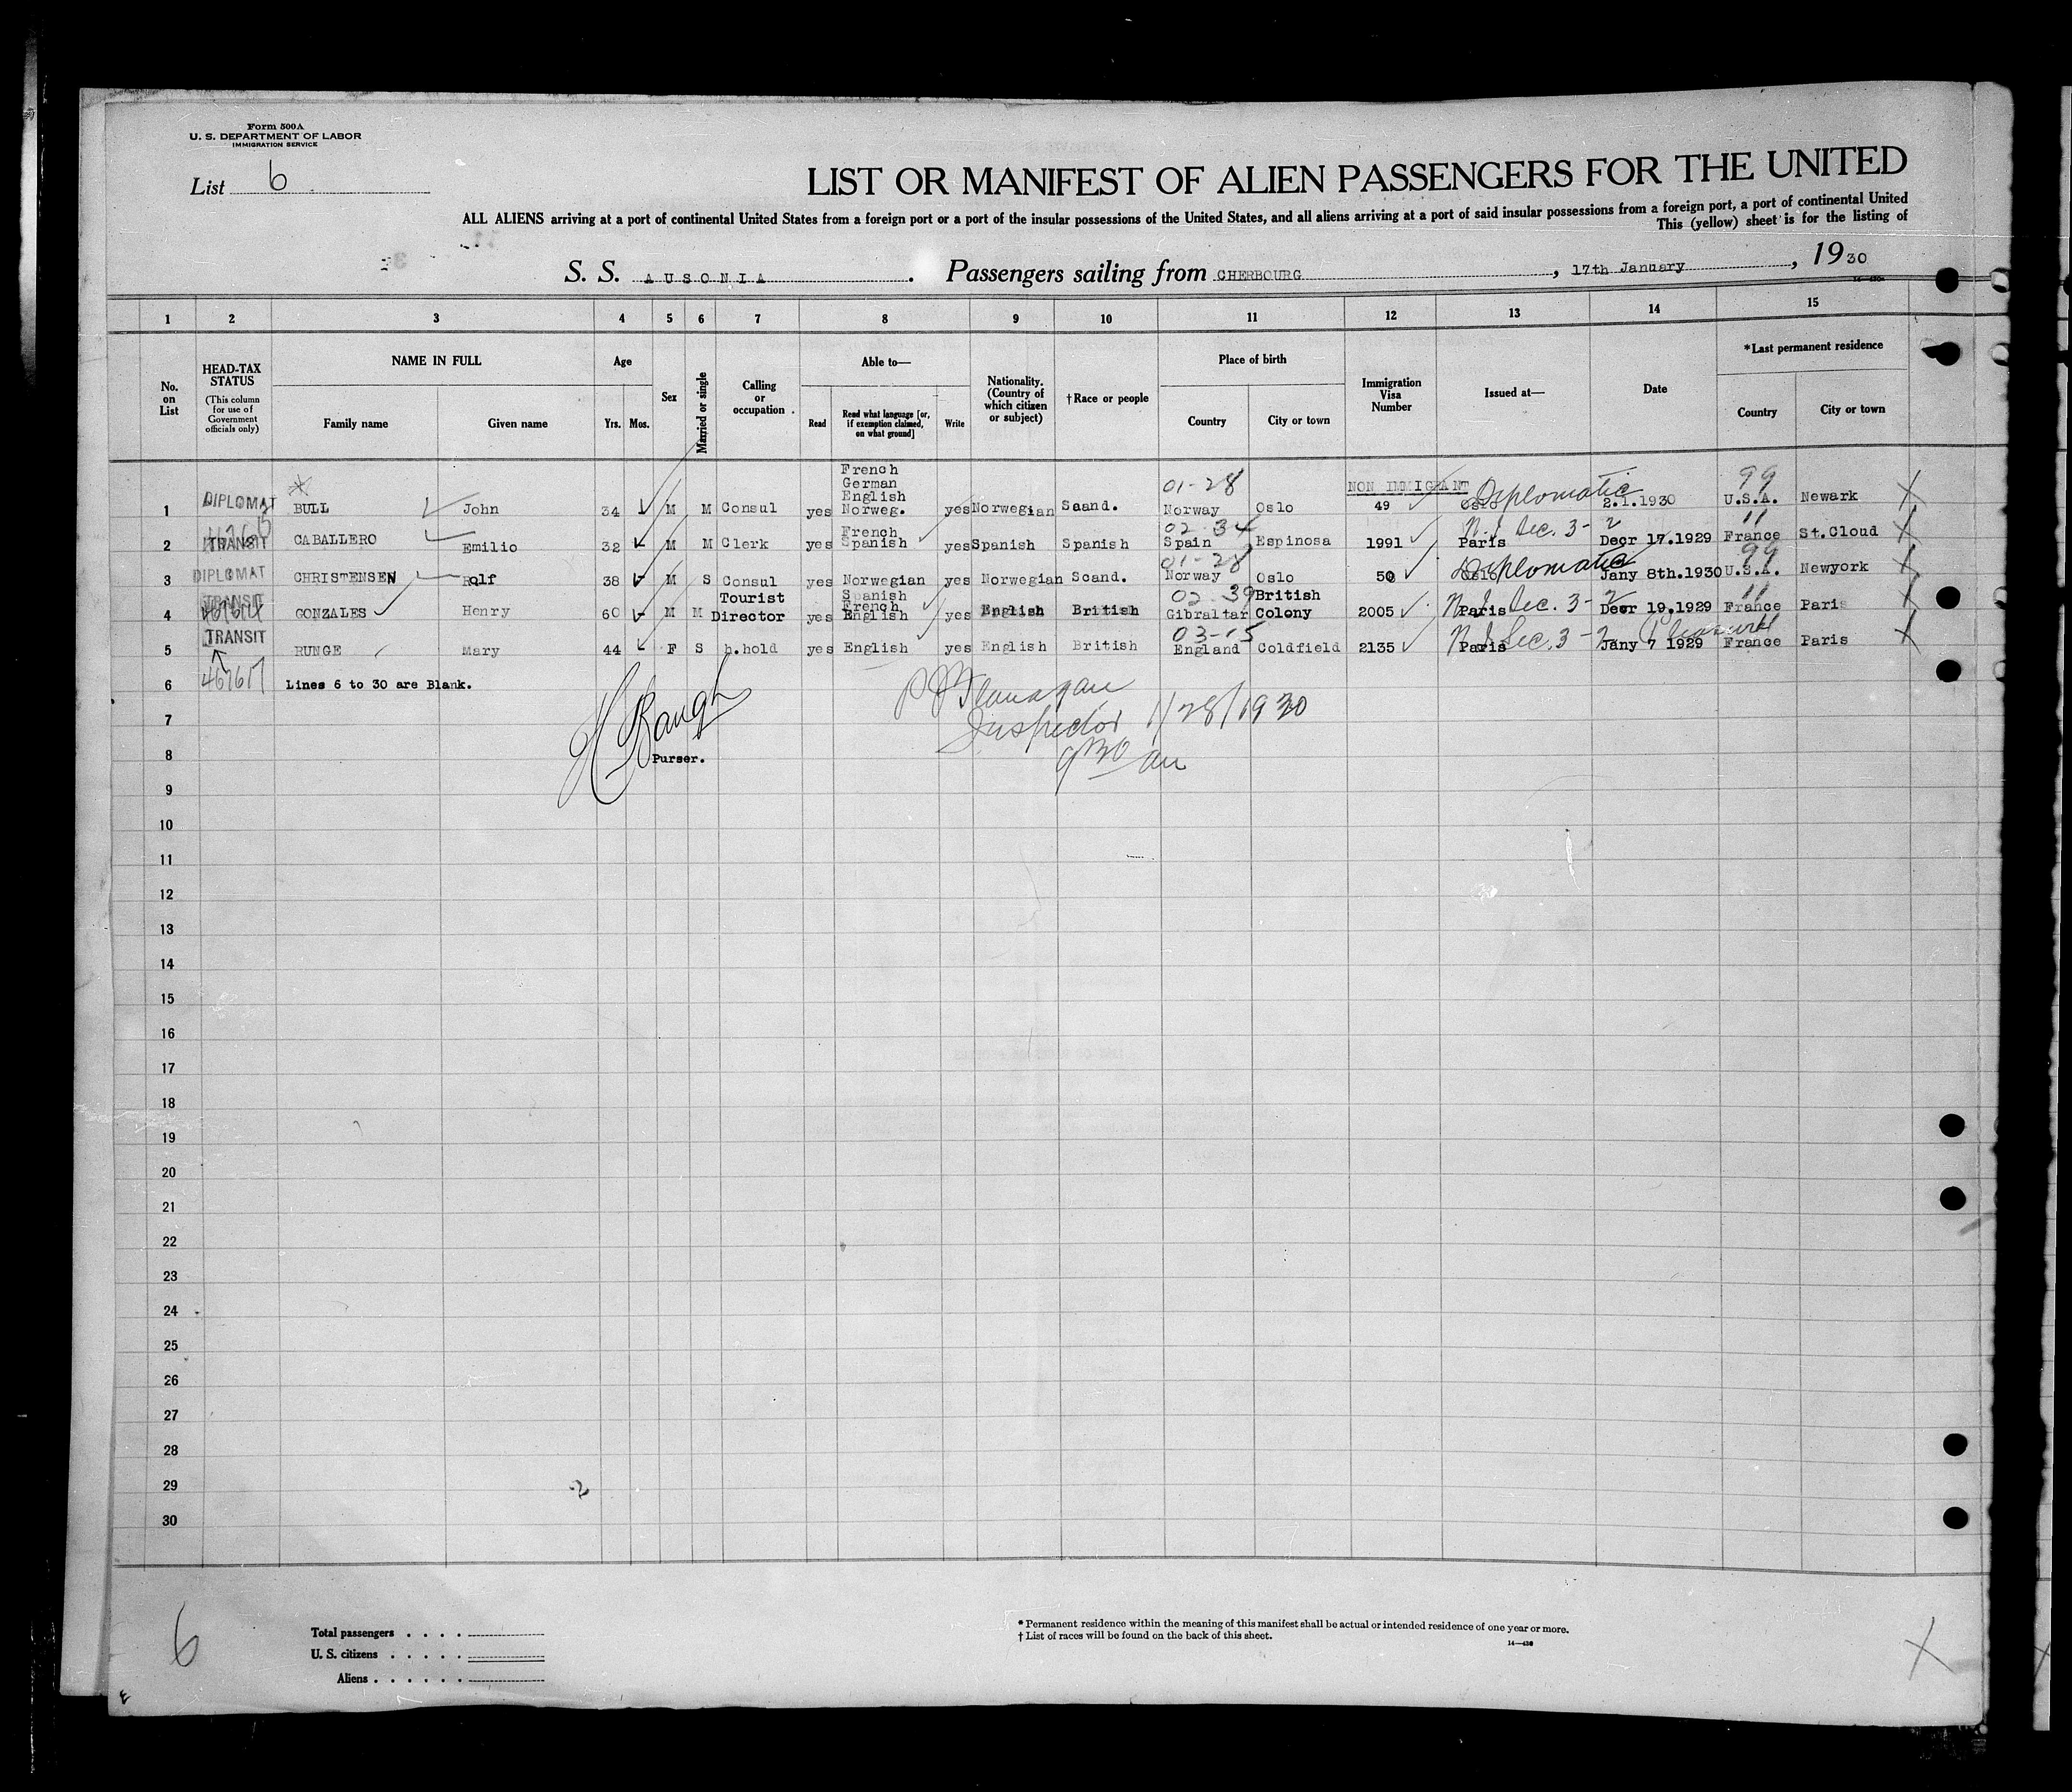 Form 500A
U. S. DEPARTMENT OF LABOR
IMMIGRATION SERVICE
List 6
LIST OR MANIFEST OF ALIEN PASSENGERS FOR THE UNITED
ALL ALIENS arriving at a port of continental United States from a foreign port or a port of the insular possessions of the United States, and all aliens arriving at a port of said insular possessions from a foreign port, a port of continental United
This (yellow) sheet is for the listing of
S. S. AUSONIA . Passengers sailing from CHERBOURG , 17th January , 1930
1 2 3 4 5 6 7 8 9 10 11 12 13 14 15
No. on List
HEAD-TAX STATUS
(This column for use of Government officials only)
NAME IN FULL
Family name
Given name
Age
Yrs. Mos.
Sex
Married or single
Calling or occupation
Able to—
Read
Read what language [or, if exemption claimed, on what ground]
Write
Nationality. (Country of which citizen or subject)
† Race or people
Place of birth
Country
City or town
Immigration Visa Number
Issued at—
Date
*Last permanent residence
Country
City or town
1 DIPLOMAT BULL John 34 M M Consul yes French German English Norweg. yes Norwegian Scand. 01-28 Norway Oslo NON IMMIGRANT 49 Oslo Diplomatic 2.1.1930 99 U.S.A. Newark
2 TRANSIT CABALLERO Emilio 32 M M Clerk yes French Spanish yes Spanish Spanish 02 34 Spain Espinosa 1991 Paris Sec. 3-2 Decr 17.1929 11 France St.Cloud
3 DIPLOMAT CHRISTENSEN Rolf 38 M S Consul yes Norwegian yes Norwegian Scand. 01-28 Norway Oslo 50 Oslo Diplomatic Jany 8th.1930 99 U.S.A. Newyork
4 TRANSIT GONZALES Henry 60 M M Tourist Director yes Spanish French English yes English British 02 39 Gibraltar British Colony 2005 Paris Sec. 3-2 Decr 19.1929 11 France Paris
5 TRANSIT RUNGE Mary 44 F S h.hold yes English yes English British 03-15 England Coldfield 2135 Paris Sec. 3-2 Jany 7 1929 France Paris
6 Lines 6 to 30 are Blank.
7
Inspector 1/28/1930
8 Purser.
9 30 am
9
10
11
12
13
14
15
16
17
18
19
20
21
22
23
24
25
26
27
28
29
30
6
Total passengers
U. S. citizens
Aliens
* Permanent residence within the meaning of this manifest shall be actual or intended residence of one year or more.
† List of races will be found on the back of this sheet.